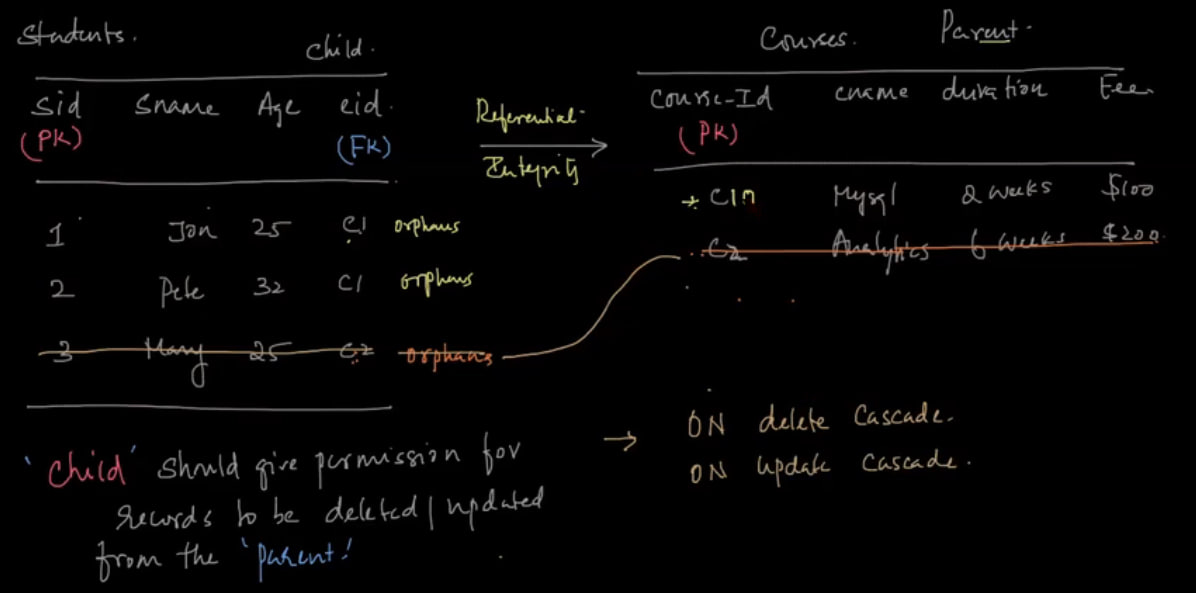 Students.
Child.
Sid Sname Age cid.
(PK) (FK)
1 Jon 25 C1 orphans
2 Pete 32 C1 orphans
3 Mary 25 C2 orphans
Referential
Integrity
Courses. Parent.
Course-Id cname duration Fee
(PK)
Mysql 2 weeks $100
C2 Analytics 6 weeks $200
'Child' should give permission for
records to be deleted/updated
from the 'parent'
→ ON delete Cascade.
ON update Cascade.